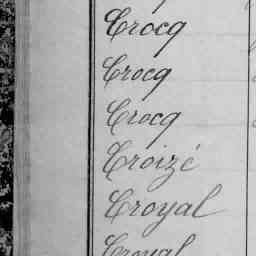 Crocq
Crocq
Crocq
Croizé
Croyal
Croyal